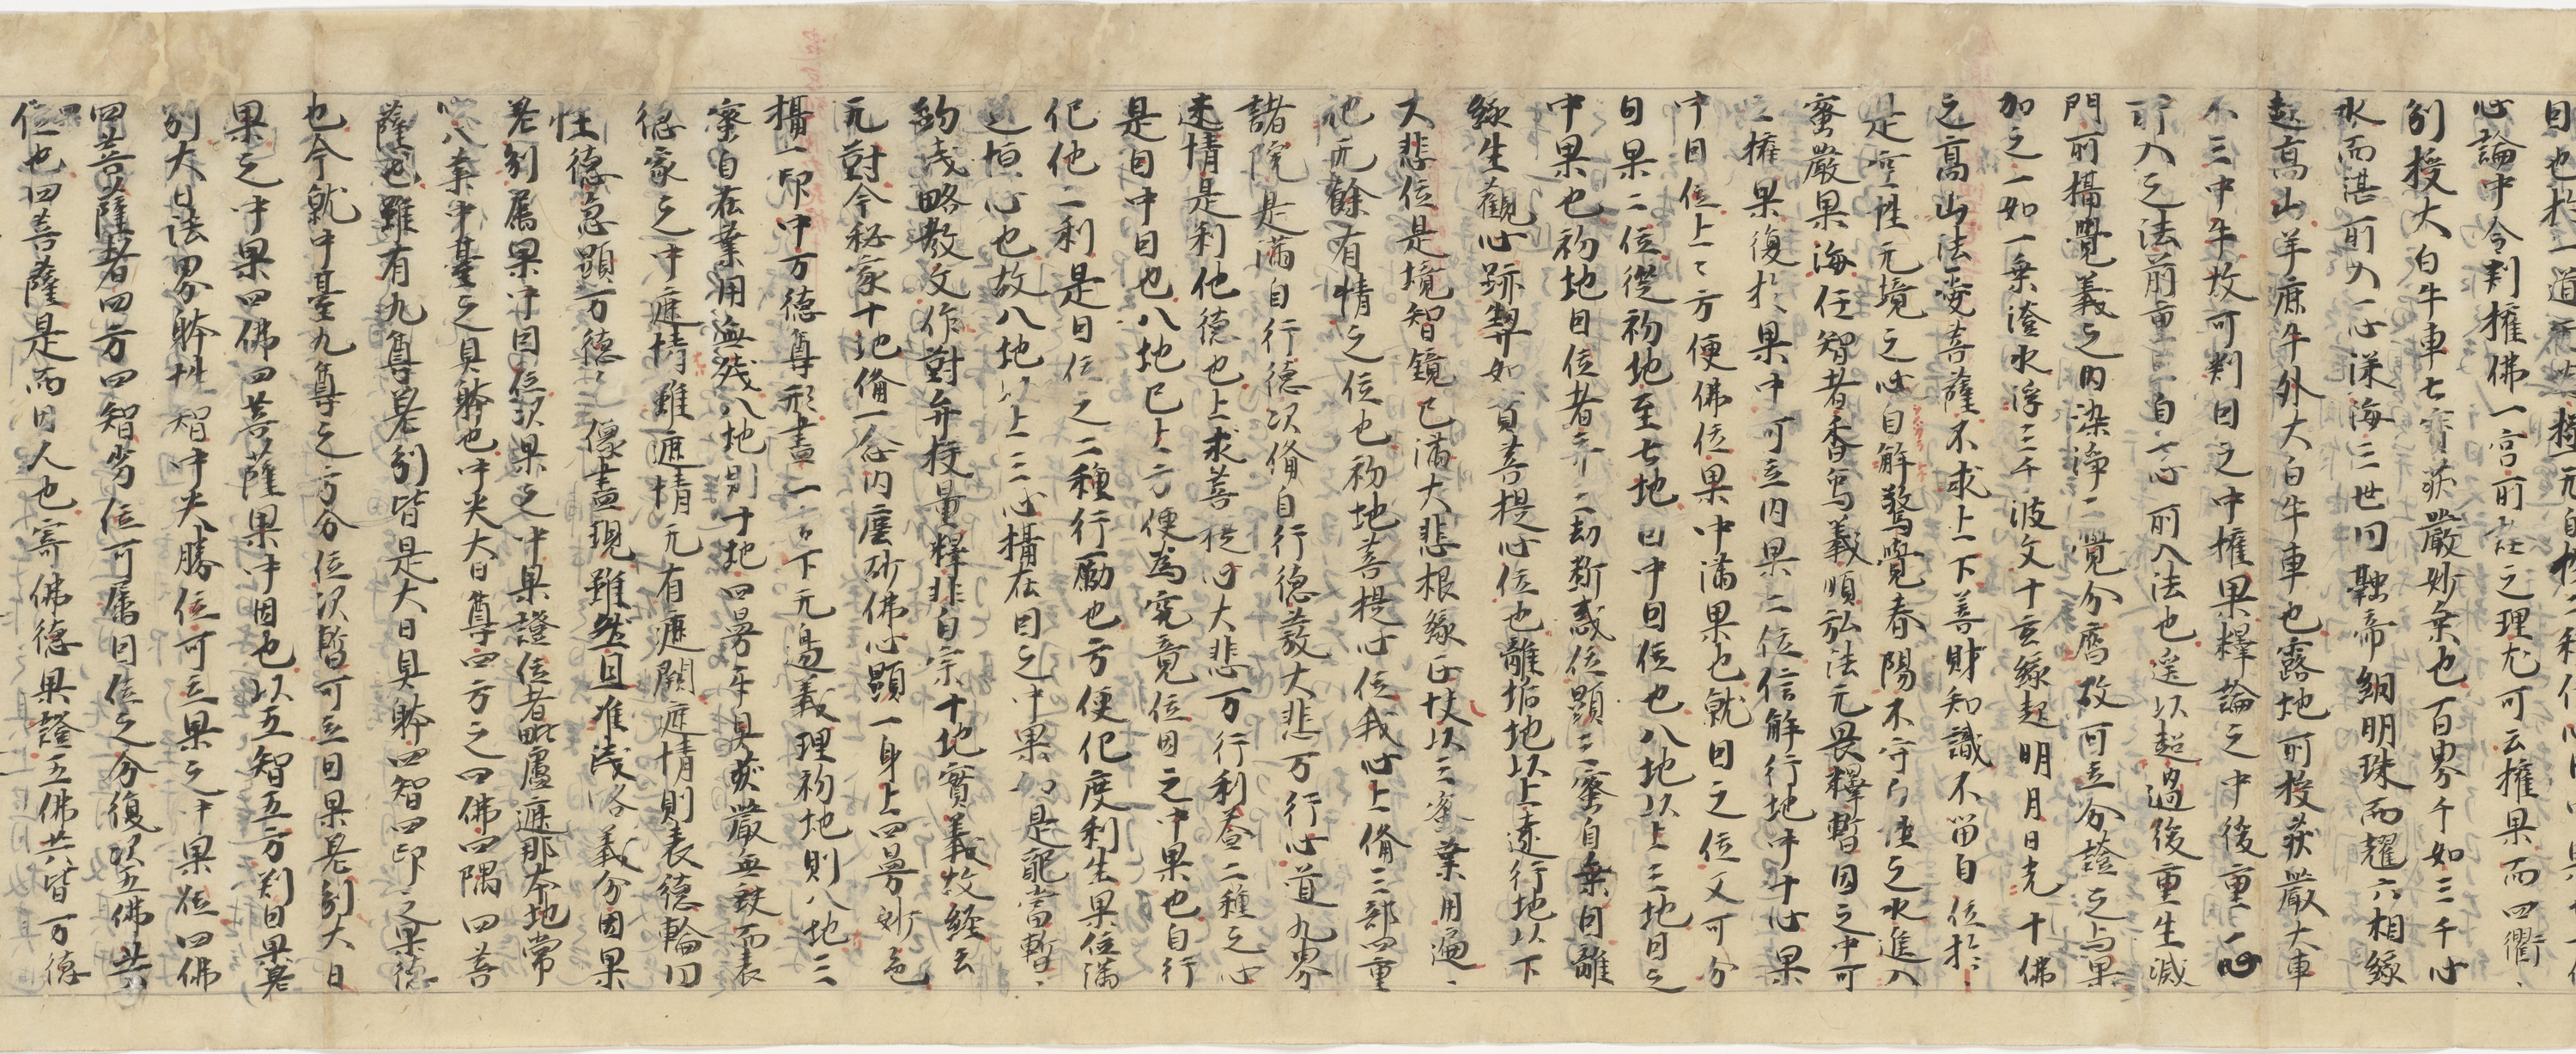 心論中今判擁佛一宮前在之理尤可云擁果而四衢
別授大白牛車七寶荘嚴妙乗也百界千如三千心
水而湛前入一心漾海三世円融帝網明珠而耀六相緣
起髙山羊麻牛外大白牛車也露地前授荘嚴大車
不三中牛故可判因之中擁果釋論之中後重一心
前入之法前重自一心前入法也遥以超過後重生滅
門前攝覺義之内染淨二覚分齊故可立分證之与果
加之一如一乗澄水浮三千波文十玄緣起明月日光十佛
之髙山法愛菩薩不求上下善財知識不留自位於
是空性无境之心自解驚覺春陽不守自性之水進入
蜜嚴果海任智者香烏義順弘法无畏釋暫因之中可
立擁果復於果中可立因果二位信解行地中十心果
中因位上上方便佛位果中滿果也就因之位又可分
因果二位從初地至七地因中因位也八地以上三地因之
中果也初地因位者三劫斷惑位顯三蜜自乗因離
緣生觀心跡算如實菩提心位也離垢地以上遠行地以下
大悲位是境智鏡已滿大悲根緣正扶以三蜜業用遍
他无餘有情之位也初地菩提心位我心上備三部四重
諸院是滿自行德次備自行德義大悲万行心道九界
迷情是利他德也上求菩提心大悲万行利益二種之心
是因中因也八地已上方便為究竟位因之中果也自行
化他二利是因位之二種行勵也方便化度利生果位滿
之恒心也故八地以上三心攝在因之中果如是配當暫
約淺略教文作對弁挍量釋非自宗十地實義故經云
无對今秘家十地備一念内塵砂佛心顯一身上四曼妙色
攝一印中万德尊形畫一下无邊義理初地則八地三
蜜自在業用無殘八地則十地四曼年具荘嚴無缺而表
德家之中遮情雖遮情无有遮闕遮情則表德輪円
性德急顯万德像盡現雖然且准淺略義分因果
差別属果中因位次果之中果證位者毗盧遮那本地常
心八葉中臺之具躰也中央大日尊四方之四佛四隅四菩
薩也雖有九尊差別皆是大日具躰四智四印之果德
也今就中臺九尊之方分位次暫可立因果差別大日
果之中果四佛四菩薩果中因也以五智五方判因果差
別大日法界躰性智中央勝位可立果之中果位四佛
四菩薩者四方四智劣位可属因位之分復次五佛共
位也四菩薩是而因人也寄佛德果證五佛共皆万德